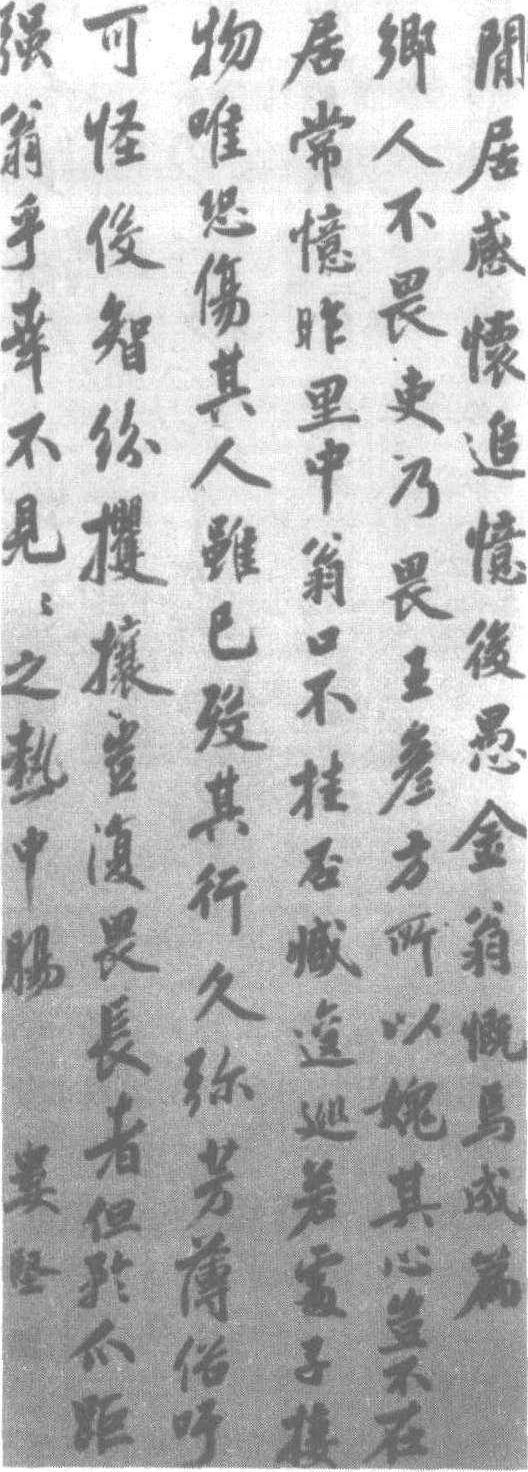 閒居感懷追憶後愚金翁慨焉成篇
鄉人不畏吏乃畏王彥方所以媿其心豈不在
居常憶昨里中翁口不挂否臧逡巡若處子接
物唯恐傷其人雖已歿其行久彌芳薄俗吁
可怪後智紛攫攘豈復畏長者但矜爪距
强翁乎幸不見〻之熱中腸 婁堅